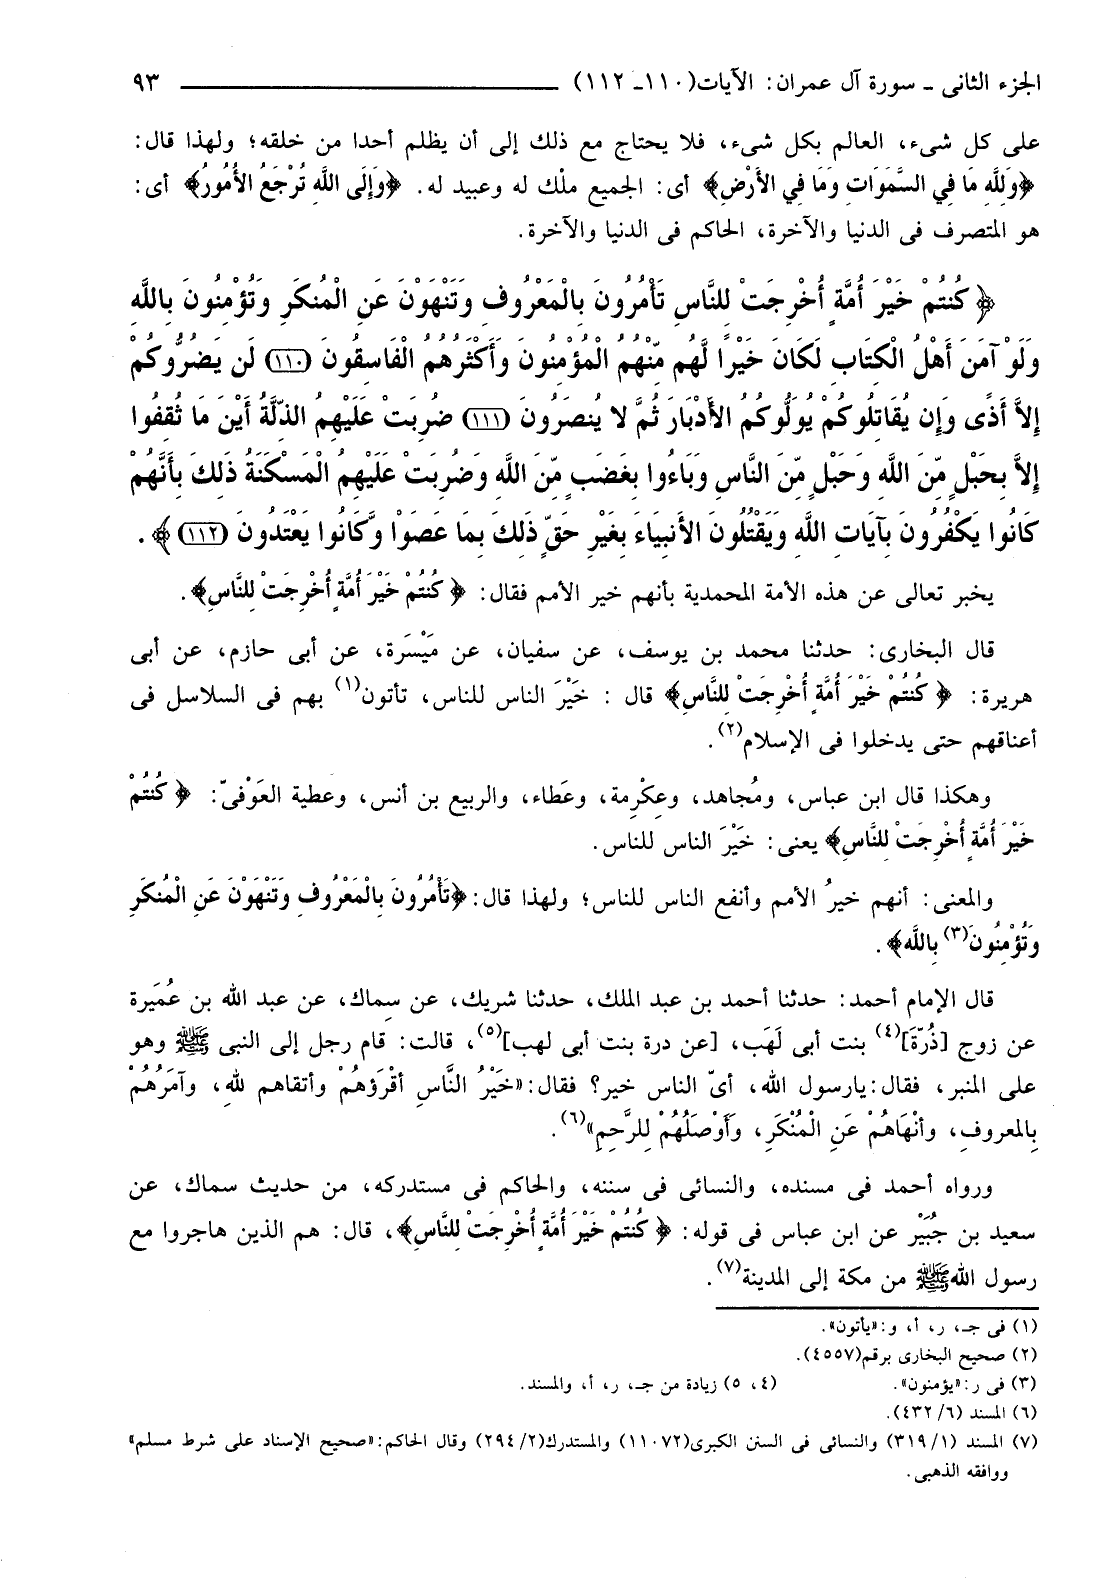 الجزء الثانى - سورة آل عمران: الآيات(١١٠ـ ١١٢) ٩٣
على كل شىء، العالم بكل شىء، فلا يحتاج مع ذلك إلى أن يظلم أحدا من خلقه؛ ولهذا قال:
﴿وَلِلَّهِ مَا فِي السَّمَوَاتِ وَمَا فِي الأَرْضِ﴾ أى: الجميع ملْك له وعبيد له. ﴿وَإِلَى اللَّهِ تُرْجَعُ الأُمُورُ﴾ أى:
هو المتصرف فى الدنيا والآخرة، الحاكم فى الدنيا والآخرة.
﴿كُنتُمْ خَيْرَ أُمَّةٍ أُخْرِجَتْ لِلنَّاسِ تَأْمُرُونَ بِالْمَعْرُوفِ وَتَنْهَوْنَ عَنِ الْمُنكَرِ وَتُؤْمِنُونَ بِاللَّهِ
وَلَوْ آمَنَ أَهْلُ الْكِتَابِ لَكَانَ خَيْرًا لَّهُم مِّنْهُمُ الْمُؤْمِنُونَ وَأَكْثَرُهُمُ الْفَاسِقُونَ (١١٠) لَن يَضُرُّوكُمْ
إِلاَّ أَذًى وَإِن يُقَاتِلُوكُمْ يُوَلُّوكُمُ الأَدْبَارَ ثُمَّ لا يُنصَرُونَ (١١١) ضُرِبَتْ عَلَيْهِمُ الذِّلَّةُ أَيْنَ مَا ثُقِفُوا
إِلاَّ بِحَبْلٍ مِّنَ اللَّهِ وَحَبْلٍ مِّنَ النَّاسِ وَبَاءُوا بِغَضَبٍ مِّنَ اللَّهِ وَضُرِبَتْ عَلَيْهِمُ الْمَسْكَنَةُ ذَلِكَ بِأَنَّهُمْ
كَانُوا يَكْفُرُونَ بِآيَاتِ اللَّهِ وَيَقْتُلُونَ الأَنبِيَاءَ بِغَيْرِ حَقٍّ ذَلِكَ بِمَا عَصَوْا وَّكَانُوا يَعْتَدُونَ (١١٢)﴾.
يخبر تعالى عن هذه الأمة المحمدية بأنهم خير الأمم فقال: ﴿كُنتُمْ خَيْرَ أُمَّةٍ أُخْرِجَتْ لِلنَّاسِ﴾.
قال البخارى: حدثنا محمد بن يوسف، عن سفيان، عن مَيْسَرة، عن أبى حازم، عن أبى
هريرة: ﴿كُنتُمْ خَيْرَ أُمَّةٍ أُخْرِجَتْ لِلنَّاسِ﴾ قال : خَيْرَ الناس للناس، تأتون(١) بهم فى السلاسل فى
أعناقهم حتى يدخلوا فى الإسلام(٢).
وهكذا قال ابن عباس، ومُجاهد، وعِكْرِمة، وعَطاء، والربيع بن أنس، وعطية العَوْفىّ: ﴿كُنتُمْ
خَيْرَ أُمَّةٍ أُخْرِجَتْ لِلنَّاسِ﴾ يعنى: خَيْرَ الناس للناس.
والمعنى: أنهم خيرُ الأمم وأنفع الناس للناس؛ ولهذا قال: ﴿تَأْمُرُونَ بِالْمَعْرُوفِ وَتَنْهَوْنَ عَنِ الْمُنكَرِ
وَتُؤْمِنُونَ(٣) بِاللَّهِ﴾.
قال الإمام أحمد: حدثنا أحمد بن عبد الملك، حدثنا شريك، عن سِماك، عن عبد الله بن عُمَيرة
عن زوج [ذُرّةَ](٤) بنت أبى لَهَب، [عن درة بنت أبى لهب](٥)، قالت: قام رجل إلى النبى ﷺ وهو
على المنبر، فقال: يارسول الله، أىّ الناس خير؟ فقال: «خَيْرُ النَّاسِ أقْرَؤهُمْ وأتقاهم للهِ، وآمَرُهُمْ
بِالمعروفِ، وأنْهَاهُمْ عَنِ الْمُنْكَرِ، وَأَوْصَلُهُمْ لِلرَّحِمِ»(٦).
ورواه أحمد فى مسنده، والنسائى فى سننه، والحاكم فى مستدركه، من حديث سماك، عن
سعيد بن جُبَيْر عن ابن عباس فى قوله: ﴿كُنتُمْ خَيْرَ أُمَّةٍ أُخْرِجَتْ لِلنَّاسِ﴾، قال: هم الذين هاجروا مع
رسول اللهﷺ من مكة إلى المدينة(٧).
(١) فى جـ، ر، أ، و: «يأتون».
(٢) صحيح البخارى برقم(٤٥٥٧).
(٣) فى ر: «يؤمنون». (٤، ٥) زيادة من جـ، ر، أ، والمسند.
(٦) المسند (٦/ ٤٣٢).
(٧) المسند (١/ ٣١٩) والنسائى فى السنن الكبرى(١١٠٧٢) والمستدرك(٢/ ٢٩٤) وقال الحاكم: «صحيح الإسناد على شرط مسلم»
ووافقه الذهبى.